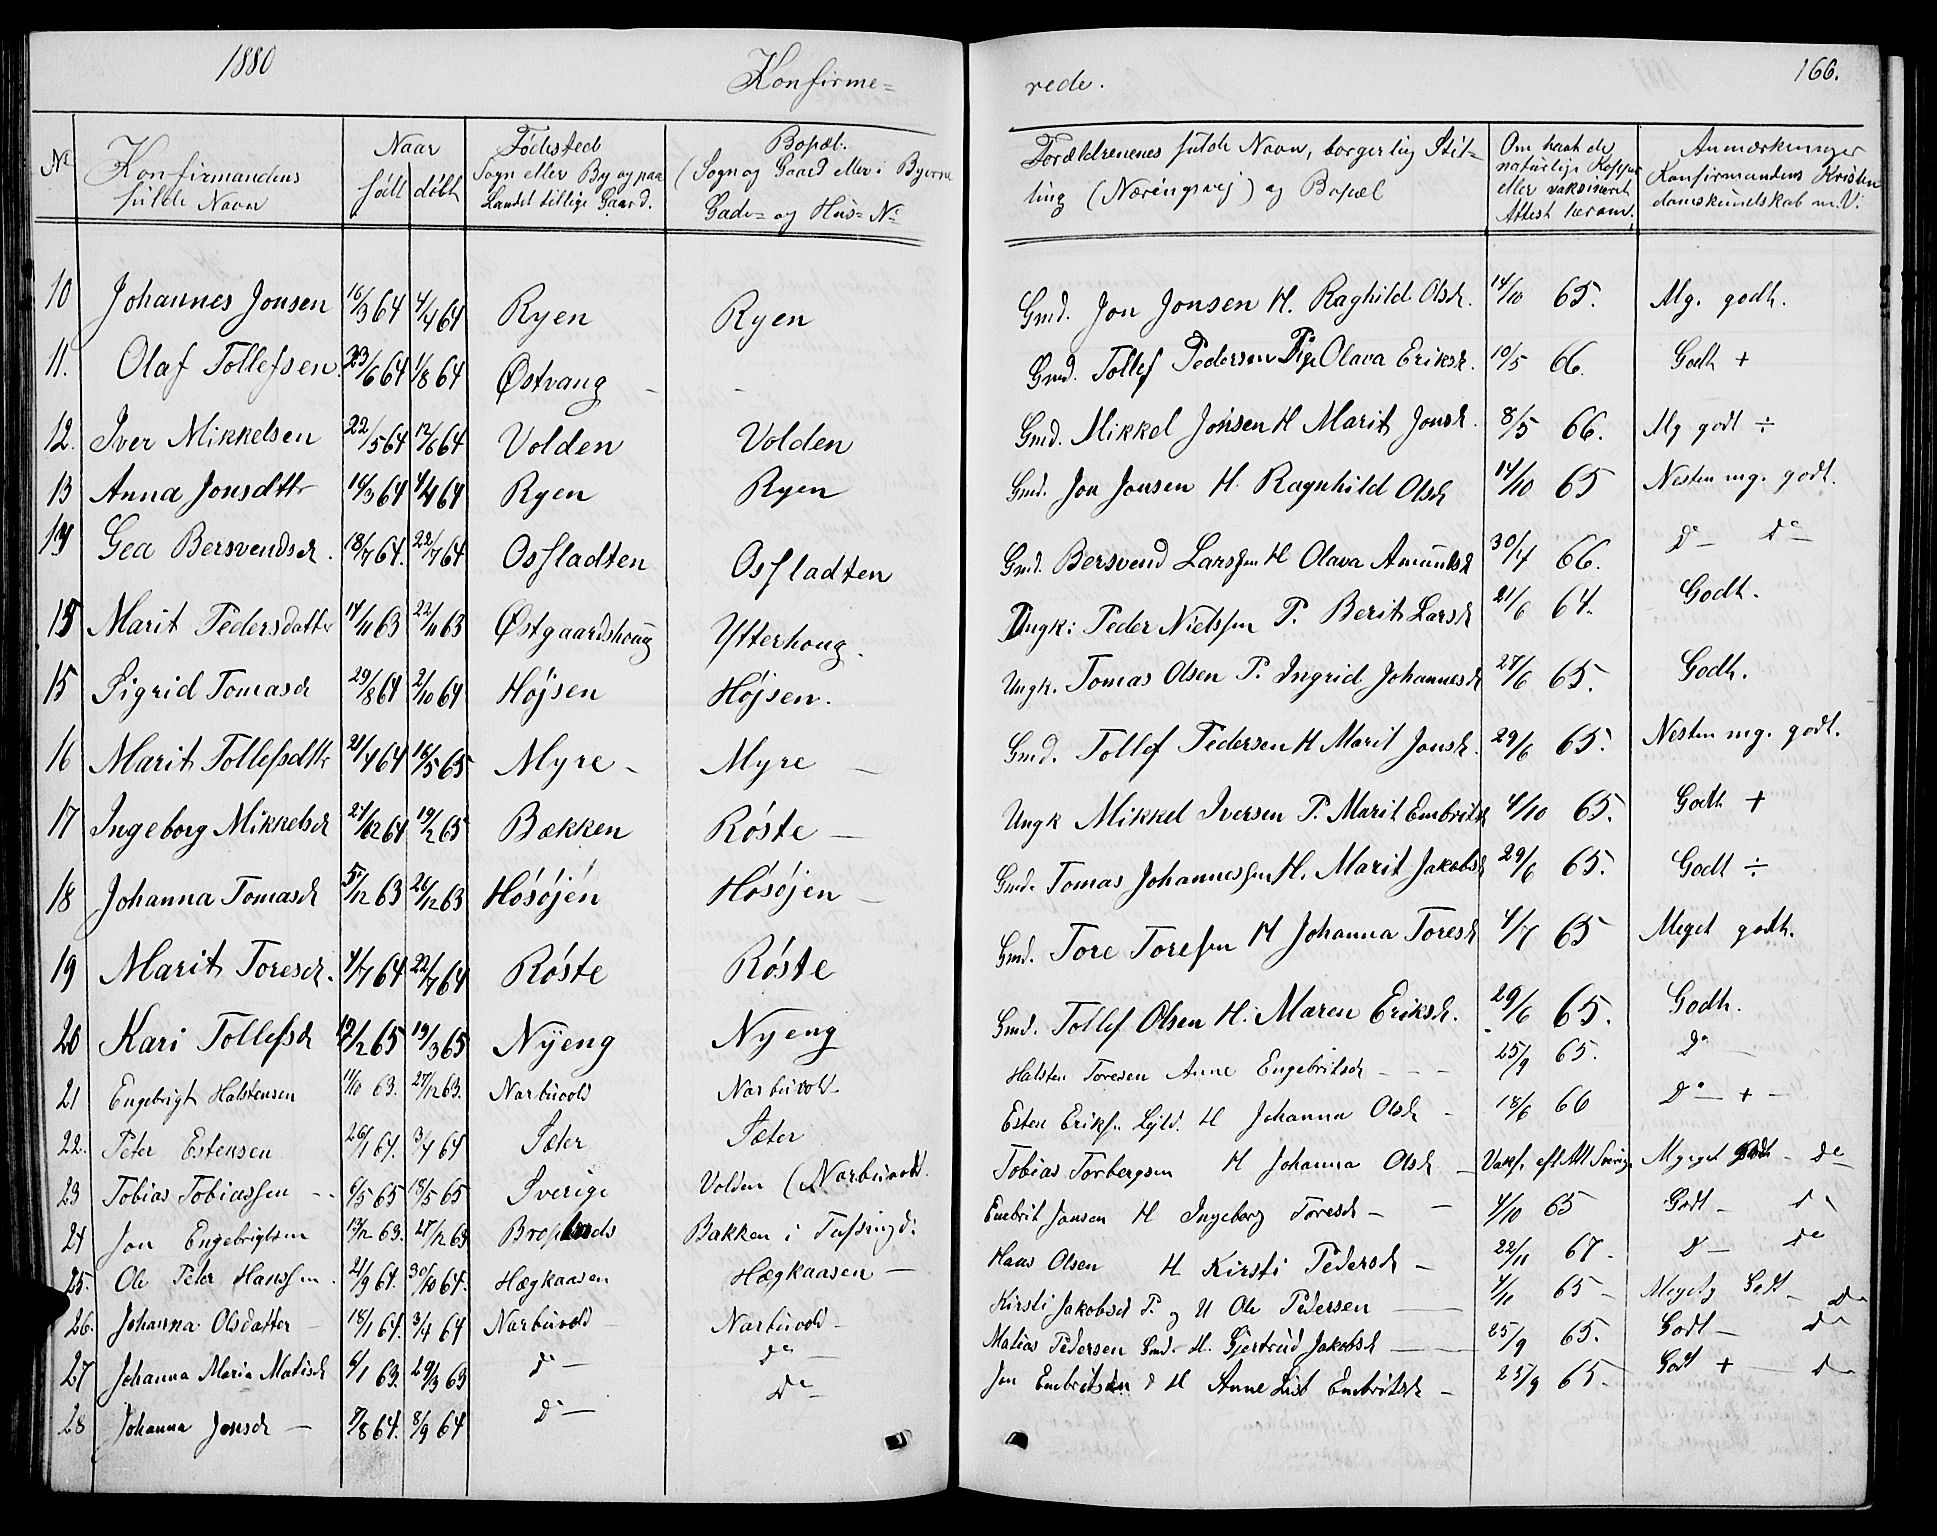 1880
Konfirme=
No
Konfirmandens fulde Navn
Naar
født
døbt
Fødested
Sogn eller By og paa
Landet tillige Gaard.
Bopæl.
(Sogn og Gaard eller i Byerne
Gade= og Hus= No
10 Johannes Jonsen 16/3 64 4/4 64 Ryen Ryen
11. Olaf Tollefsen 23/6 64 1/8 64 Østvang — —
12. Iver Mikkelsen 22/5 64 12/6 64 Volden Volden
13 Anna Jonsdttr 16/3 64 4/4 64 Ryen Ryen
14 Gea Bersvendsd. 18/7 64. 22/7 64 Osfladten Osfladten
15 Marit Pedersdatter 14/11 63 22/11 63 Østgaardshoug Ytterhoug.
15 Sigrid Tomasd 29/8 64 2/10 64 Højsen Højsen.
16 Marit Tollefsdttr 21/4 64 16/5 65 Myre — Myre —
17 Ingeborg Mikkelsd 27/12 64 19/2 65 Bækken Røste —
18 Johanna Tomasd 5/12 63 26/12 63 Høsøjen Høsøjen —
19 Marit Toresd. 4/7 64 22/7 64 Røste Røste
20 Kari Tollefsd 12/2 65 19/3 65 Nyeng Nyeng
21 Engebrigt Halstensen 11/10 63. 27/12 63. Narbuvold Narbuvold
22. Peter Estensen 26/1 64. 3/4 64 Sæter Sæter
23 Tobias Tobiassen — 6/5 65 18/5 65 Sverige Volden (Narbuvold.
24 Jon Engebrigtsen 13/12 63. 27/12 63 Bakken i Tufsingd:
25. Ole Peter Hanssen 21/9 64. 30/10 64. Hægkaasen Hægkaasen —
26. Johanna Olsdatter — 18/1 64. 3/4 64 Narbuvold — Narbuvold —
27 Johanna Maria Matisd 6/1 63. 29/3 63 do — do —
28 Johanna Jonsd — 7/8 64. 8/9 64 Do — Do —
rede.
166.
Forældrenes fulde Navn, borgerlig Stil-
ling (Næringsvej) og Bopæl
Om havt de
naturlige Kopper
eller vaksineret
Attest herom.
Anmærkninger
Konfirmandens Kristen
domskundskab m.V.
Gmd. Jon Jonsen H. Raghild Olsd. 14/10 65. Mg. godt.
Gmd. Tollef Pedersen Pige Olava Eriksd. 10/5 66. Godt +
Gmd. Mikkel Jonsen H Marit Jonsd. 8/5 66. Mg godt ÷
Gmd. Jon Jonsen H. Ragnhild Olsd 14/10 65 Nesten mg. godt.
Gmd. Bersvend Larssen H Olava Amundsd 30/4 66. Do — Do —
Ungk: Peder Nielssen P. Berit Larsd 21/6 64. Godt.
Ungk. Tomas Olsen P. Ingrid Johannesd 27/6 65. Godt.
Gmd. Tollef Pedersen H Marit Jonsd. 29/6 65. Nesten mg. godt.
Ungk Mikkel Iversen P. Marit Embretsd 4/10 65. Godt +
Gmd. Tomas Johannessen H. Marit Jakobsd 29/6 65. Godt ÷
Gmd. Tore Toresen H Johanna Toresd 4/7 65 Meget godt.
Gmd. Tollef Olsen H. Maren Eriksd. 29/6 65. Godt.
Halsten Toresen Anne Engebritsd — — — 25/9 65. Do —
Esten Eriksn H Johanna Olsd — 18/6 66 Do — + —
Tobias Torbergsen H Johanna Olsd — Vaks. eft Att Sverige Myget Godt — Do
Embrit Jonsen H Ingeborg Toresd — — 4/10 65 Godt — do
Hans Olsen H Kirsti Pedersd — 22/11 67. Do — do
Kirsti Jakobsd P. og U Ole Pedersen — 4/11 65 — Meget Godt — do
Matias Pedersen Gmd. H. Gjertrud Jakobsd — 25/9 65. Godt — do
Jon Embretsen H Anne List Embritsd — 25/9 65 — Godt + — do